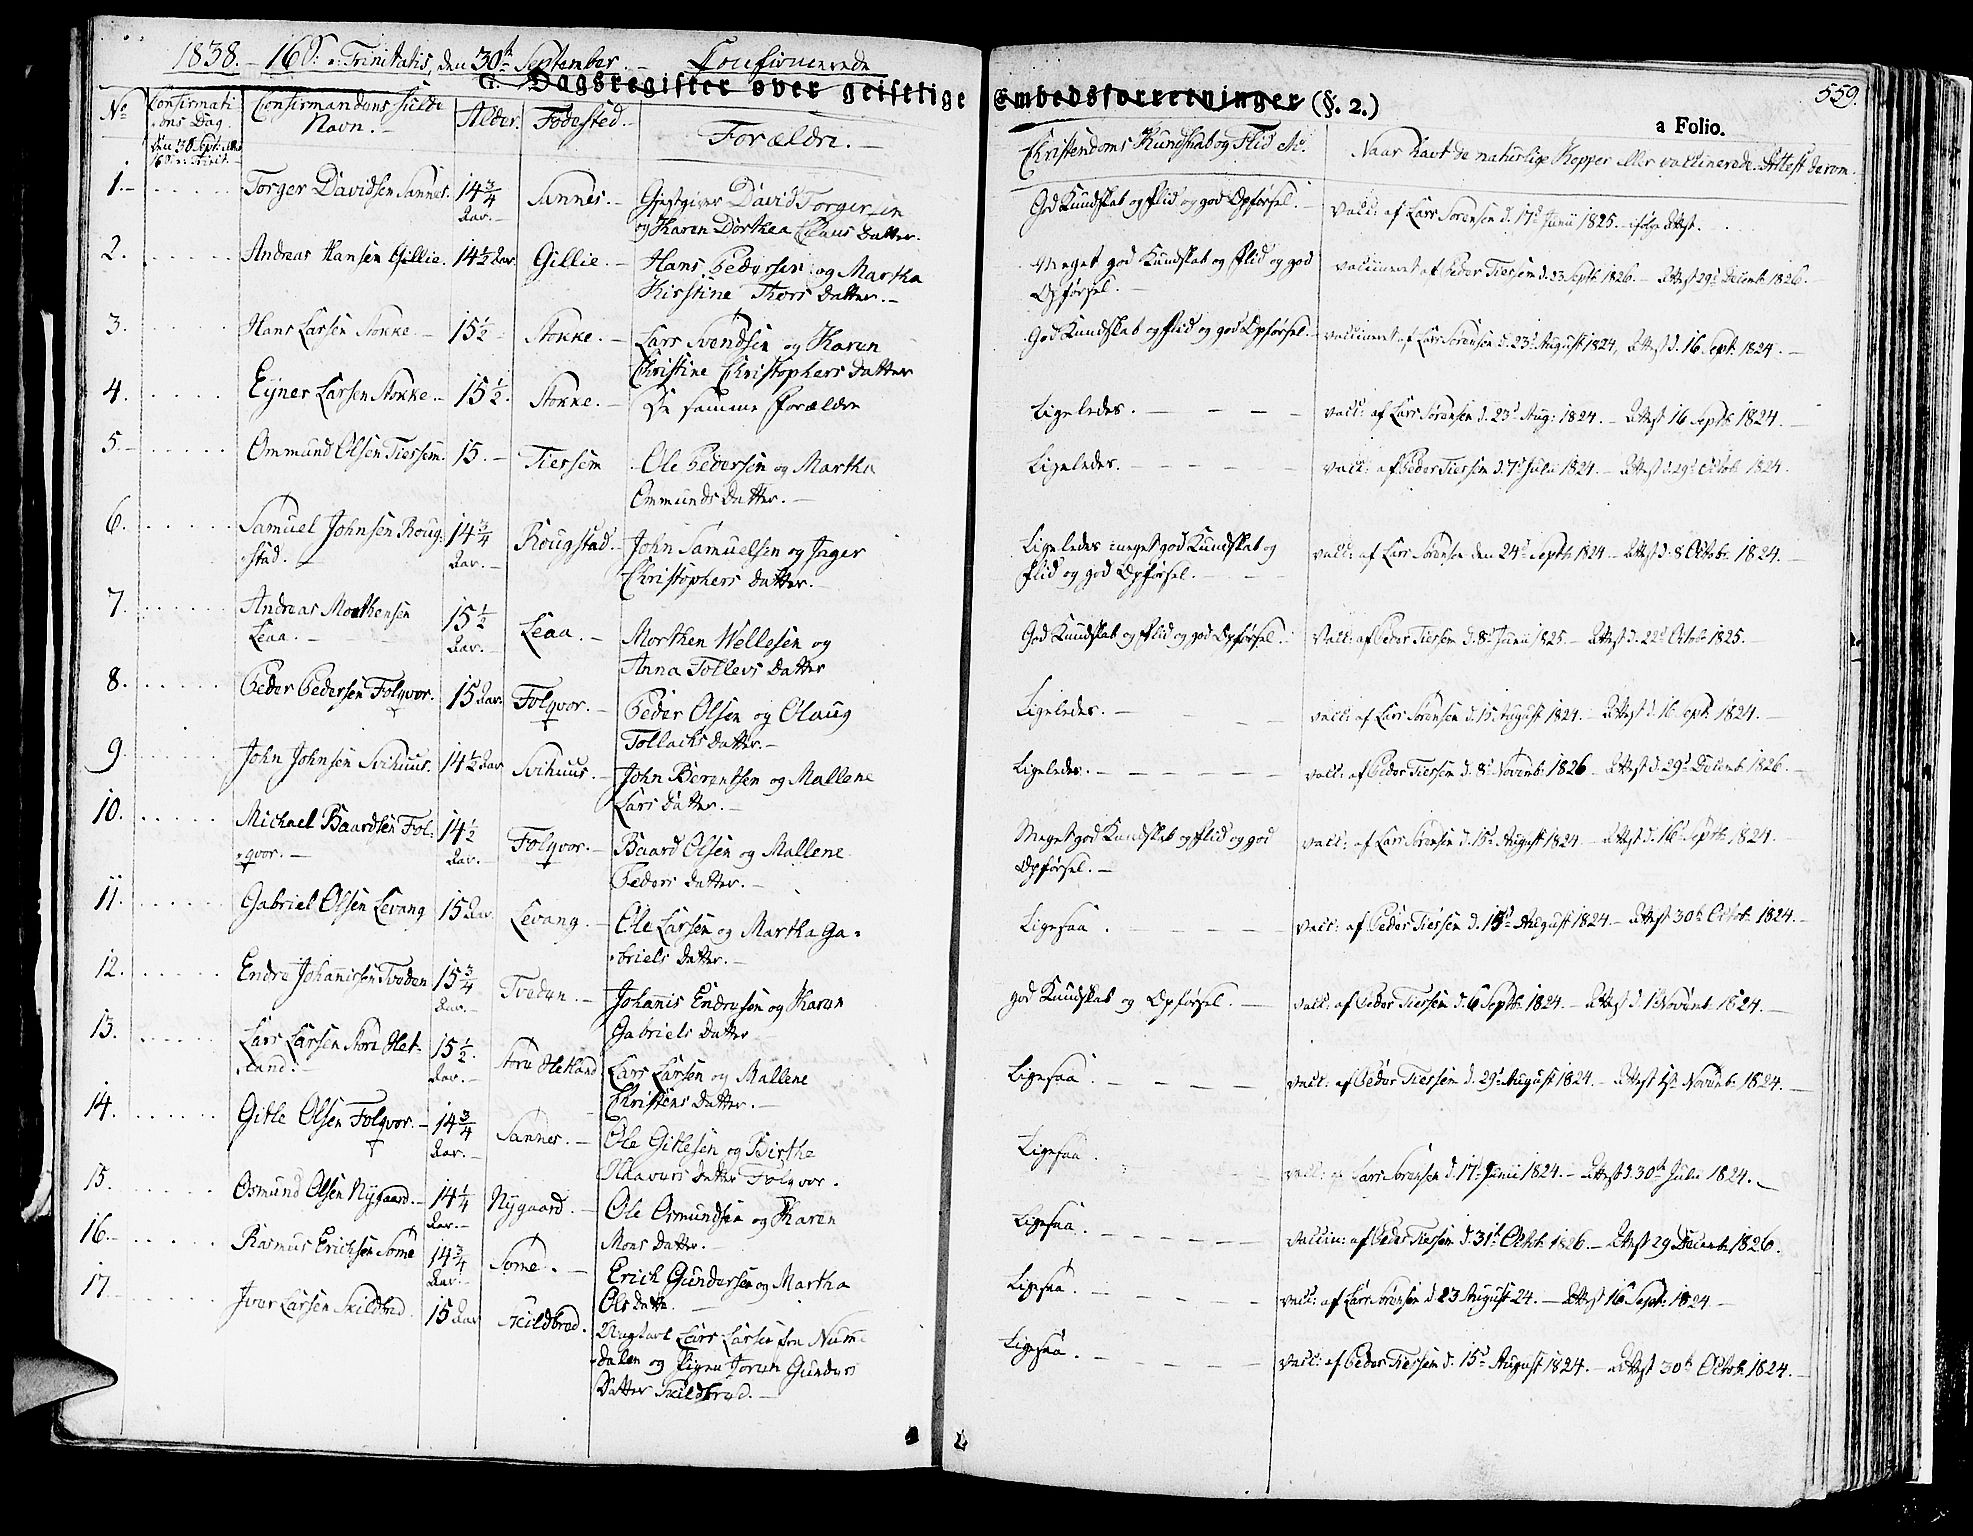 1838. — 16 S. a. Trinitatis, den 30th September. — Confirmerede
G. Dagsregister over geistlige Embedsforretninger (§. 2.)
559.
a Folio.
No Confirmati ons Dag. Confirmandens fulde Navn. — Alder. Fødested. — Forældre. — Christendoms Kundskab og Flid etc. Naar havt de naturlige Kopper eller vaccinerede. Attest derom.
den 30 Sept.
1. — Torger Davidsen Sannes. 14 3/4 Aar. — Sannes. — Gjestgiver David Torgersen God Kundskab og Flid og god Opførsel. — vacc: af Lars Sørensen d. 17d Junii 1825. ifølge Attest.
og Karen Dorthea Claus Datter.
2. Andreas Hansen Gillie. 14 1/2 Aar. Gillie. — Hans Pedersen og Martha Meget god Kundskab og Flid og god vaccineret af Peder Tiersem d. 23 Sept. 1826. — Attest 29d Decemb. 1826.
Kirstine Thors Datter. — Opførsel. —
3. Hans Larsen Stokke — 15 1/2 Stokke. — Lars Svendsen og Karen God Kundskab og Flid og god Opførsel. — vaccineret af Lars Sørensen d. 23d August 1824, Attest d. 16 Sept. 1824. —
Christine Christophers Datter
4. Eyner Larsen Stokke. — 15 1/2. Stokke. — De samme Forældre Ligeledes. — vacc: af Lars Sørensen d. 23d Aug: 1824. — Attest 16 Septb. 1824.
5. — Ommund Olsen Tiersem. 15. — Tiersem Ole Pedersen og Martha Ligeledes. vacc: af Peder Tiersem d. 7d Julii 1824. — Attest d. 29d Octob. 1824.
Ommunds Datter. —
6. Samuel Johnsen Roug- 14 3/4 Aar. — Rougstad. — John Samuelsen og Inger Ligeledes meget god Kundskab og vacc: af Lars Sørensen den 24d Septb. 1824 — Attest d. 8 Octob. 1824.
stad. — Christophers Datter. — Flid og god Opførsel. —
7. Andreas Morthensen 15 1/2 Aar. — Leaa. — Morthen Wellesen og God Kundskab og Flid og god Opførsel. Vacc: af Peder Tiersem d. 8d Junii 1825. — Attest d. 22d Octob. 1825. —
Leaa. — Anna Tollevs Datter
8. Peder Pedersen Folqvor. 15 Aar. Folqvor. — Peder Olsen og Olaug Ligeledes. — vacc: af Lars Sørensen d. 15 August 1824. — Attest d. 16 Sept. 1824. —
Tollachs Datter. —
9. John Johnsen Svihuus. 14 1/2 Aar Svihuus. — John Berentsen og Mallene Ligeledes. — vacc: af Peder Tiersem d. 8d Novemb. 1826 — Attest d. 29d Decemb. 1826.
Lars Datter. —
10. Michael Baardsen Fol- 14 1/2 Aar. — Folqvor. — Baard Olsen og Mallene Meget god Kundskab og Flid og god vacc: af Lars Sørensen d. 15d August 1824 — Attest d. 16 Septb. 1824.
qvor. — Peders Datter. — Opførsel. —
11. Gabriel Olsen Levang 15 Aar. Levang. — Ole Larsen og Martha Ga- Ligesaa. vacc: af Peder Tiersem d. 15d August 1824. — Attest 30th Octob. 1824. —
briels Datter. —
12. Endre Johanissen Tveden 15 3/4 Aar. — Tveden. — Johanis Endresen og Karen god Kundskab og Opførsel. — vacc: af Peder Tiersem d. 6 Septb. 1824. — Attest d. 1 Novemb. 1824. —
Gabriels Datter
13. Lars Larsen Store Het- 15 1/2. Aar. — Store Hetland Lars Larsen og Mallene Ligesaa. — vacc: af Peder Tiersem d. 29d August 1824. — Attest 1st Novemb. 1824. —
land. Christens Datter. —
14. Gitle Olsen Folqvor. — 14 3/4 Aar. — Sannes. — Ole Gitlesen og Birthe Ligesaa. vacc: af Lars Sørensen d. 17d Junii 1824. — Attest d. 30th Julii 1824. —
Haavors Datter Folqvor.
15. Osmund Olsen Nygaard. — 14 1/4 Aar. — Nygaard. — Ole Osmundsen og Karen Ligesaa. vaccin: af Peder Tiersem d. 31t Octob. 1826. — Attest 29 Decemb. 1826.
Mons Datter. —
16. — Rasmus Erichsen Some 14 3/4 Aar. — Some. — Erich Gundersen og Martha Ligesaa. vacc: af Lars Sørensen d. 23 August 24. — Attest 16 Sept. 1824 —
Ols Datter. —
17 Iver Larsen Skildbred. 15 Aar Skildbred. Ungkarl Lars Larsen fra Num- Ligesaa. vacc: af Peder Tiersem d. 15d August 1824. — Attest 30th Octob. 1824. —
dalen og Pigen Jorun Gunders
Datter Skildbred. —